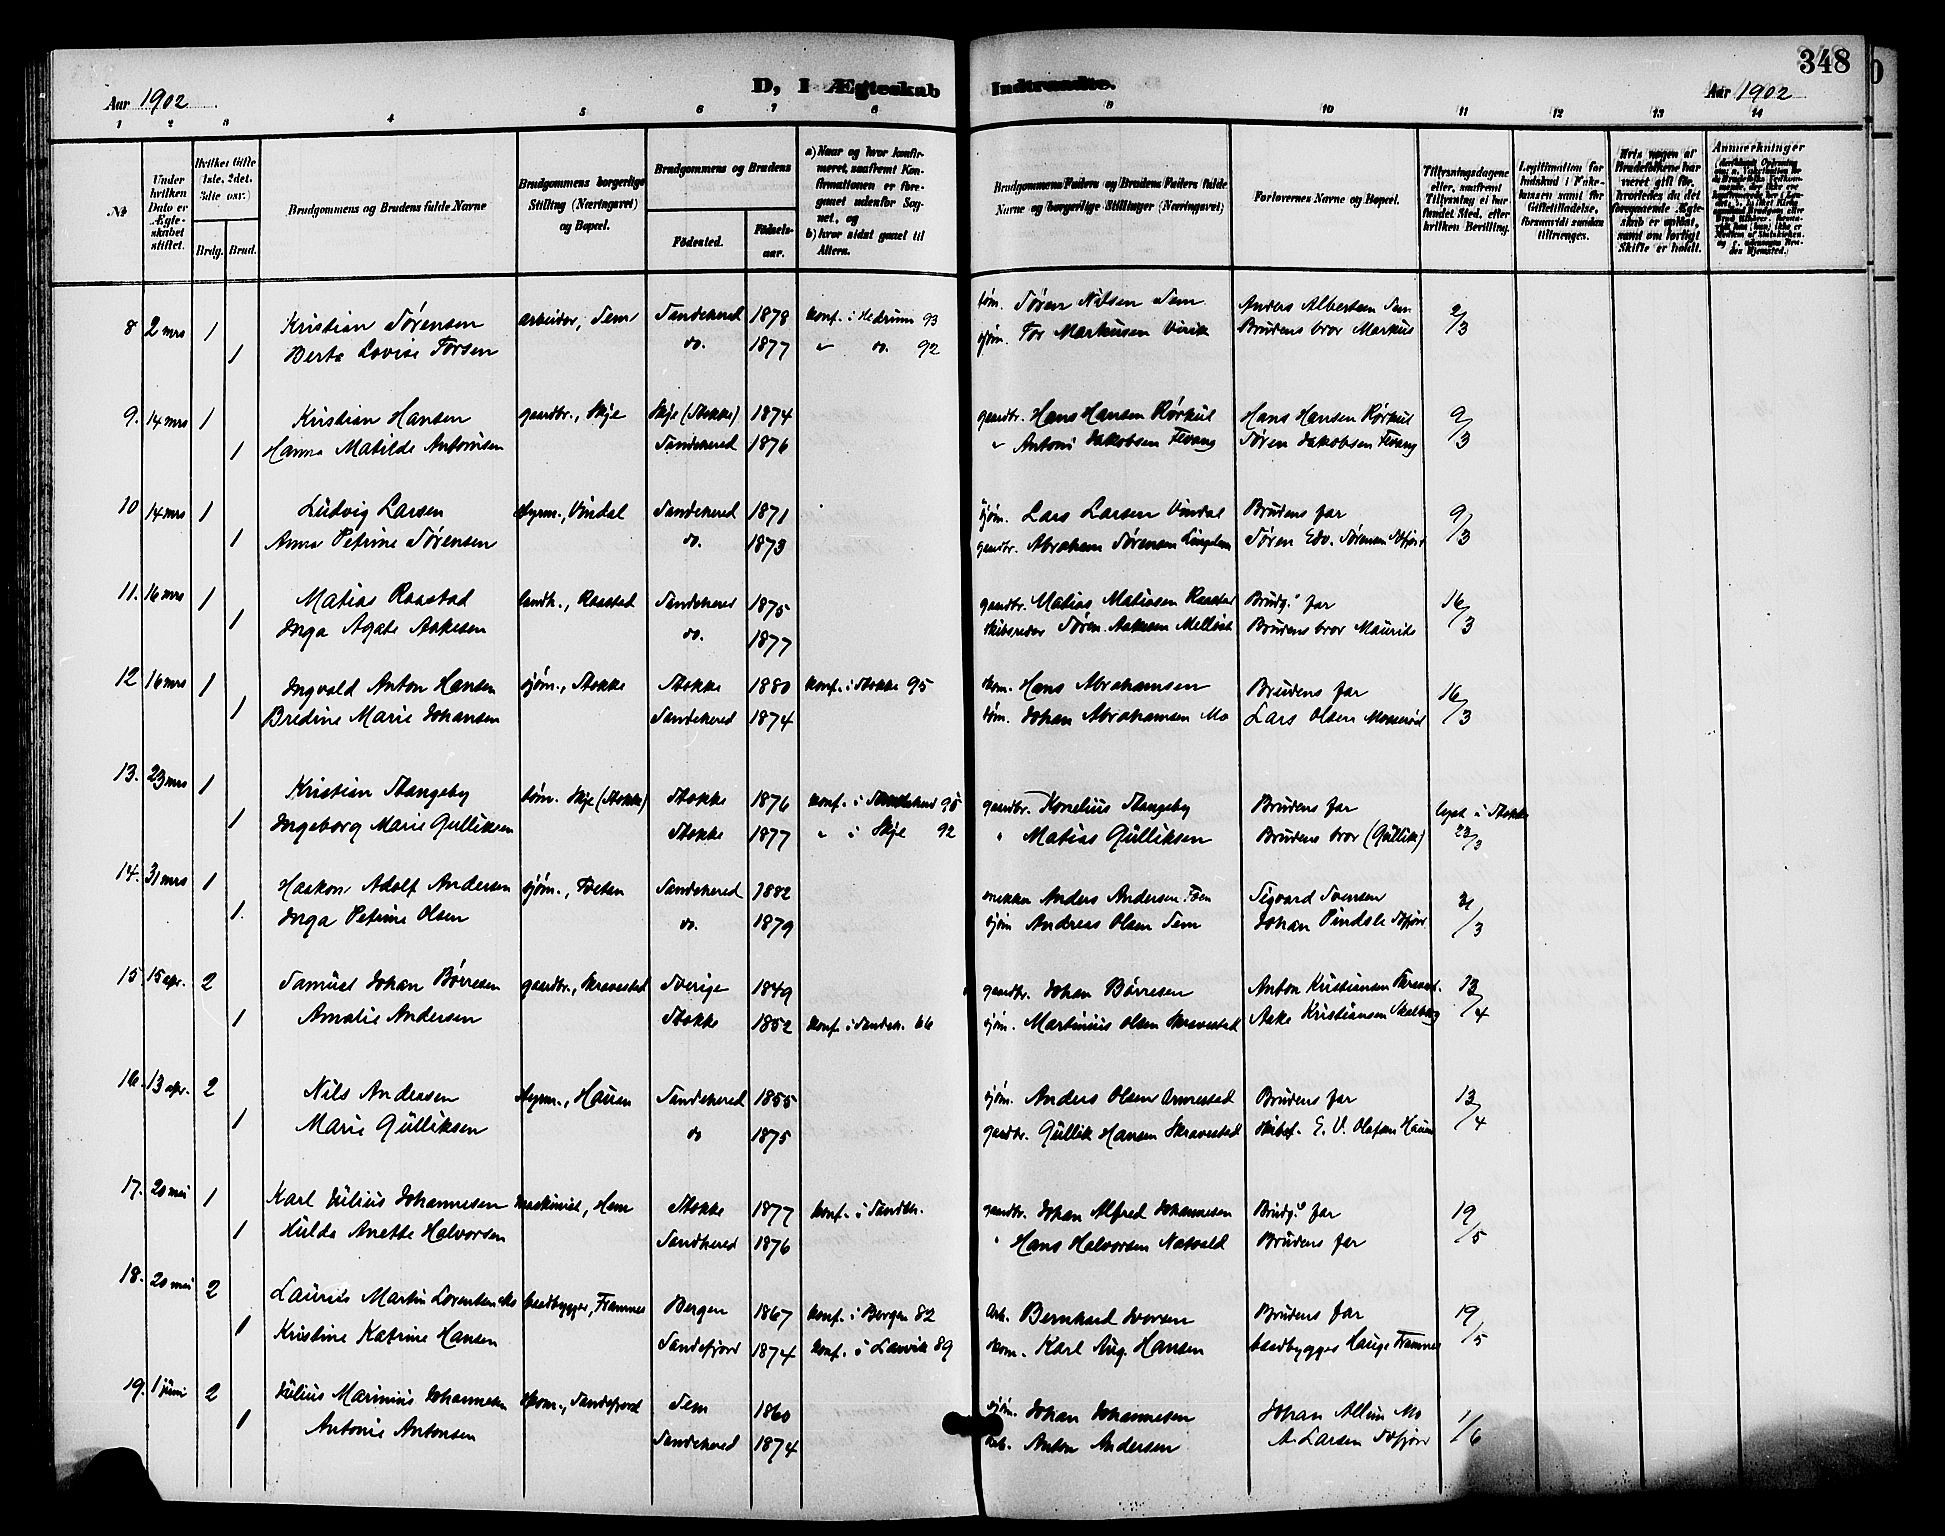 348
D, I Ægteskab Indtraadte.
Aar 1902 Aar 1902
1 2 3 4 5 6 7 8 9 10 11 12 13 14
№
Under hvilken Dato er Ægteskabet stiftet.
Hvilket Gifte 1ste, 2det, 3die osv.
Brdg. Brud.
Brudgommens og Brudens fulde Navne
Brudgommens borgerlige Stilling (Næringsvei) og Bopæl.
Brudgommens og Brudens
Fødested. Fødselsaar.
a) Naar og hvor konfirmeret, saafremt Konfirmationen er foregaaet udenfor Sognet, og
b) hvor sidst gaaet til Alters.
Brudgommens Faders og Brudens Faders fulde Navne og borgerlige Stillinger (Næringsvei)
Forlovernes Navne og Bopæl.
Tillysningsdagene eller, saafremt Tillysning ei har fundet Sted, efter hvilken Bevilling.
Legitimation for Indskud i Enkekassen samt for Giftetilladelse, forsaavidt saadan tiltrænges.
Hvis nogen af Brudefolkene har været gift før, hvorledes da det foregaaende Ægteskab er opløst, samt om lovligt Skifte er holdt.
Anmærkninger
8 2 mrs 1 Kristian Sørensen arbeider, Sem Sandeherred 1878 konf. i Hedrum 93 tøm. Søren Nilsen Sem Anders Albertsen Sem 2/3
1 Berte Lovise Torsen do. 1877 " do. 92 sjøm. Tor Markusen Virik Brudens bror Markus
9. 14 mrs 1 Kristian Hansen gaardbr., Skje Skje (Stokke) 1874 gaardbr. Hans Hansen Rørkul Hans Hansen Rørkul 9/3
1 Hanna Matilde Antonisen Sandeherred 1876 " Antoni Jakobsen Fevang Søren Jakobsen Fevang
10 14 mrs 1 Ludvig Larsen styrm., Vindal Sandeherred 1871 sjøm. Lars Larsen Vindal Brudens far 9/3
1 Anna Petrine Sørensen do. 1873 gaardbr. Abraham Sørensen Søren Edv. Sørensen Sdfjord
11. 16 mrs 1 Matias Raastad landh., Raastad Sandeherred 1875 gaardbr. Matias Matiasen Raastad Brudg.s far 16/3
1 Inga Agate Aakesen do. 1877 skibsreder Søren Aakesen Brudens bror Maurits
12 16 mrs 1 Ingvald Anton Hansen sjøm., Stokke Stokke 1880 konf. i Stokke 95 skom. Hans Abrahamsen Brudens far 16/3
1 Bredine Marie Johansen Sandeherred 1874 tøm. Johan Abrahamsen Mo Lars Olsen Moserød
13. 23 mrs 1 Kristian Stangeby tøm. Skje (Stokke) Stokke 1876 konf. i Sandeherred gaardbr. Kornelius Stangeby Brudens far lyst i Stokke
1 Ingeborg Marie Gulliksen Stokke 1877 " i Skje 92 " Matias Gulliksen Brudens bror (Gullik) 23/3
14. 31 mrs 1 Haakon Adolf Andersen sjøm., Tveten Sandeherred 1882 snekker Anders Andersen Sigvard Svensen 31/3
1. Inga Petrine Olsen do. 1879 sjøm Andreas Olsen Sem Johan Pindsle Sdfjord
15. 15 apr. 2 Samuel Johan Børresen gaardbr., Skravestad Sverige 1849 gaardbr. Johan Børresen Anton Kristiansen 13/4
1 Amalie Andersen Stokke 1852 konf. i Sandeh. 66 sjøm. Martinius Olsen Skravestad Aake Kristiansen
16. 13 apr. 2 Nils Andersen styrm., Hauan Sandeherred 1855 sjøm. Anders Olsen Brudens far 13/4
1 Marie Gulliksen do 1875 gaardbr. Gullik Hansen Skravestad skibsf. E. V. Olafsen Hauan
17. 20 mai 1 Karl Julius Johannesen maskinist, Hem Stokke 1877 konf. i Sandehr. gaardbr. Johan Alfred Johannesen Brudg.s far 19/5
1 Hulda Anette Halvorsen Sandeherred 1876 " Hans Halvorsen Natvald Brudens far
18. 20 mai 2 Laurits Martin Lorentsen baadbygger, Framnes Bergen 1867 konf. i Bergen 82 Arb. Bernhard Iversen Brudens far 19/5
1 Kristine Katrine Hansen Sandefjord 1874 konf. i Larvik 89 skom. Karl Aug. Hansen baadbygger Hauge Framnes
19. 1 juni 2 Julius Marinius Johannesen skom., Sandefjord Sem 1860 sjøm. Johan Johannesen Johan Allum Mo 1/6
1 Antonie Antonsen Sandeherred 1874 Arb. Anton Andersen A. Larsen Sdfjord